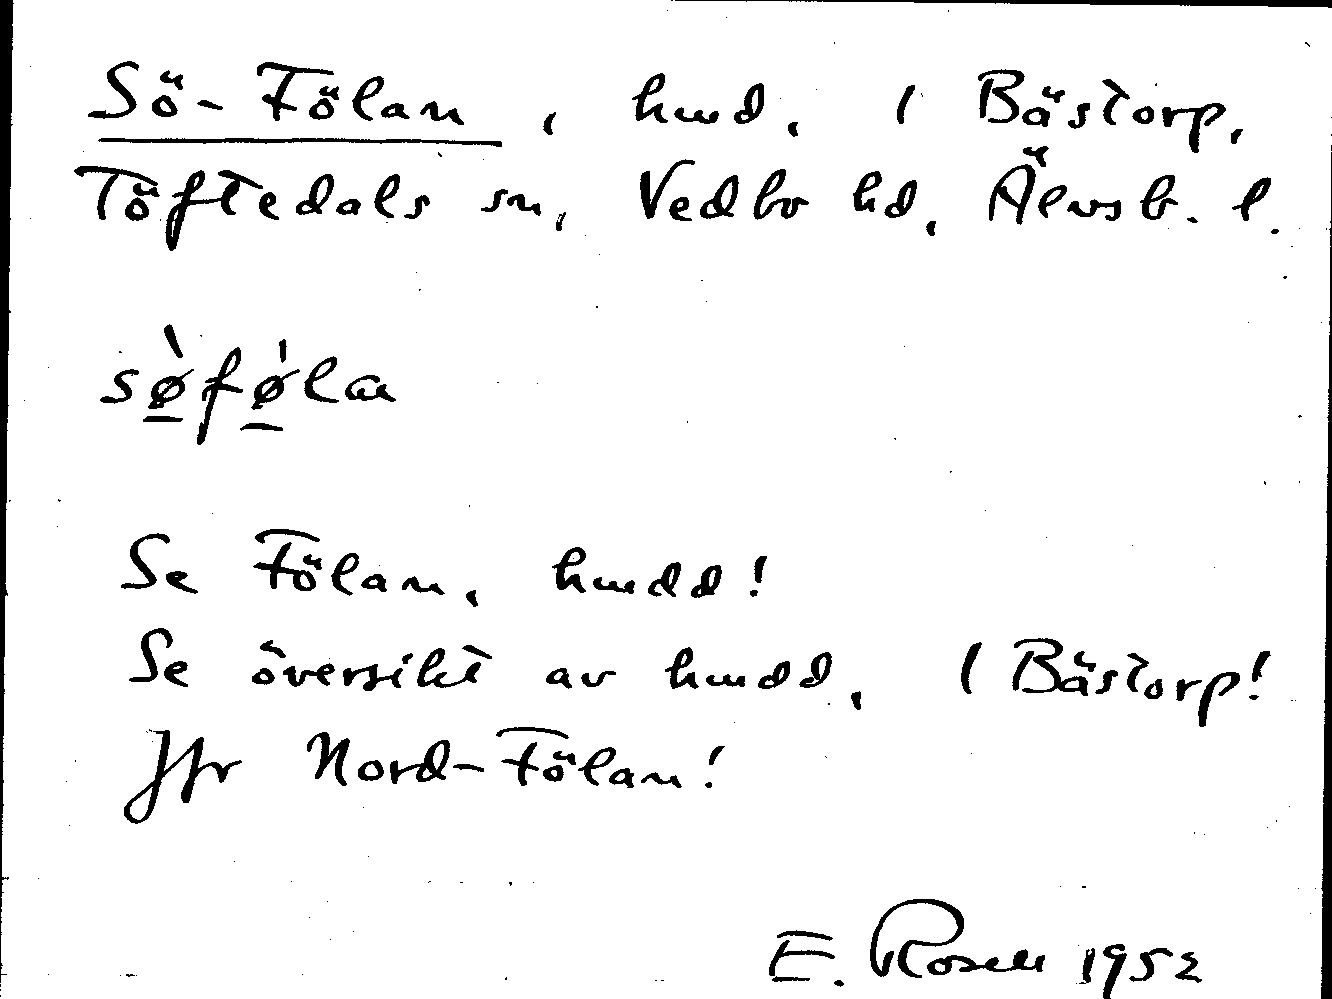 Sö-Fölan, hmd, / Bästorp,
Töftedals sn, Vedbo hd, Älvsb. l.
sø̀fø̍la
Se Fölan, hmdd!
Se översikt av hmdd, / Bästorp!
Jfr Nord-Fölan!
E. Rosell 1952